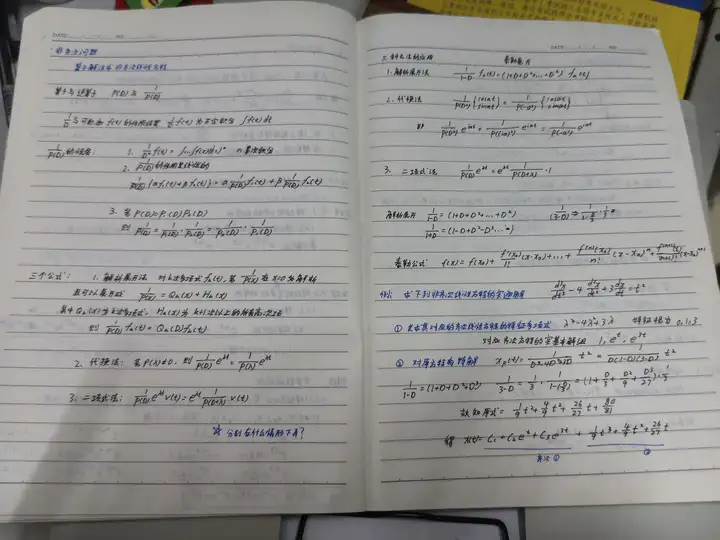 非齐次问题
算子解法求非齐次线性方程
算子与逆算子 P(D) 与 1/P(D)
1/D 与可微函 f(t) 的作用设置 1/D f(t) 为不定积分 ∫f(t)dt
1/P(D) 的性质: 1. 1/Dⁿ f(t) = ∫…∫f(t)(dt)ⁿ n 重积分
2. 1/P(D) 的作用是线性的
1/P(D) {αf₁(t)+βf₂(t)} = α 1/P(D) f₁(t) + β 1/P(D) f₂(t)
3. 若 P(D)=P₁(D)P₂(D)
则 1/P(D) = 1/P₁(D) · 1/P₂(D) = 1/P₂(D) · 1/P₁(D)
三个公式: 1. 解析展开法 对 k 次多项式 fₖ(t), 若 1/P(x) 在 x=0 处解析
且可以展开成 1/P(x) = Qₖ(x) + Hₖ(x)
其中 Qₖ(x) 为 k 次多项式, Hₖ(x) 为 k+1 次以上的
则 1/P(D) fₖ(t) = Qₖ(D)fₖ(t)
2. 代换法: 若 P(λ)≠0, 则 1/P(D) e^λt = 1/P(λ) e^λt
3. 二项式法: 1/P(D) e^λt v(t) = e^λt 1/P(D+λ) v(t)
☆ 分别在什么情形下用?
三种方法的应用 泰勒展开
1. 解析展开法 1/(1-D) fₖ(t) = (1+D+D²+…+Dᵏ) fₖ(t)
2. 代换法 1/P(D²) {cosat sinat} = 1/P(-a²) {cosat sinat}
即 1/P(D²) e^iat = 1/P((ia)²) e^iat = 1/P(-a²) e^iat
3. 二项式法 1/P(D) e^λt = e^λt 1/P(D+λ) · 1
解析展开 1/(1-D) = (1+D+D²…+Dᵏ) 1/(3-D) ⇒ 1/(1-D/3) · 1/3
1/(1+D) = (1-D+D²-D³…)
泰勒公式 f(x) = f(x₀) + f'(x₀)/1! (x-x₀) + … + f⁽ⁿ⁾(x₀)/n! (x-x₀)ⁿ + f⁽ⁿ⁺¹⁾(ξ)/(n+1)! (x-x₀)ⁿ⁺¹
例: 求下列非齐次线性方程的实通解 d³x/dt³ - 4 d²x/dt² + 3 dx/dt = t²
① 先求其对应的齐次线性方程的特征多项式 λ³-4λ²+3λ 特征根为 0,1,3
对应齐次方程的实基本解组 1, eᵗ, e³ᵗ
② 对原方程有特解 xₚ(t) = 1/(D³-4D²+3D) t² = 1/(D(1-D)(3-D)) t²
1/(1-D) = (1+D+D²+D³) 1/(3-D) = 1/3 · 1/(1-(D/3)) = (1+D/3+D²/9+D³/27) · 1/3
故 = 1/9 t³ + 4/9 t² + 26/27 t + 80/81
得 x(t) = C₁+C₂eᵗ+C₃e³ᵗ + 1/9 t³ + 4/9 t² + 26/27 t
齐次① ②